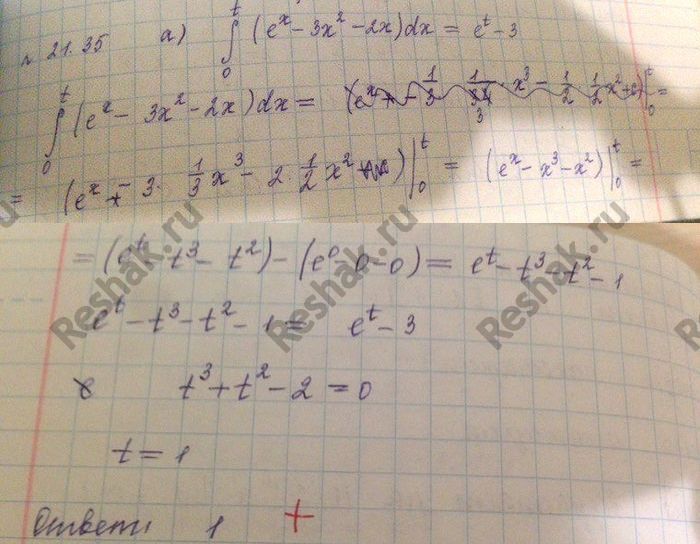 № 21.35 а) ∫₀ᵗ (eˣ − 3x² − 2x)dx = eᵗ − 3
∫₀ᵗ (eˣ − 3x² − 2x)dx =
= (eˣ − 3 · 1/3 x³ − 2 · 1/2 x²)|₀ᵗ = (eˣ − x³ − x²)|₀ᵗ =
= (eᵗ − t³ − t²) − (e⁰ − 0 − 0) = eᵗ − t³ − t² − 1
eᵗ − t³ − t² − 1 = eᵗ − 3
t³ + t² − 2 = 0
t = 1
Ответ: 1 +
Reshak.ru
Reshak.ru
Reshak.ru